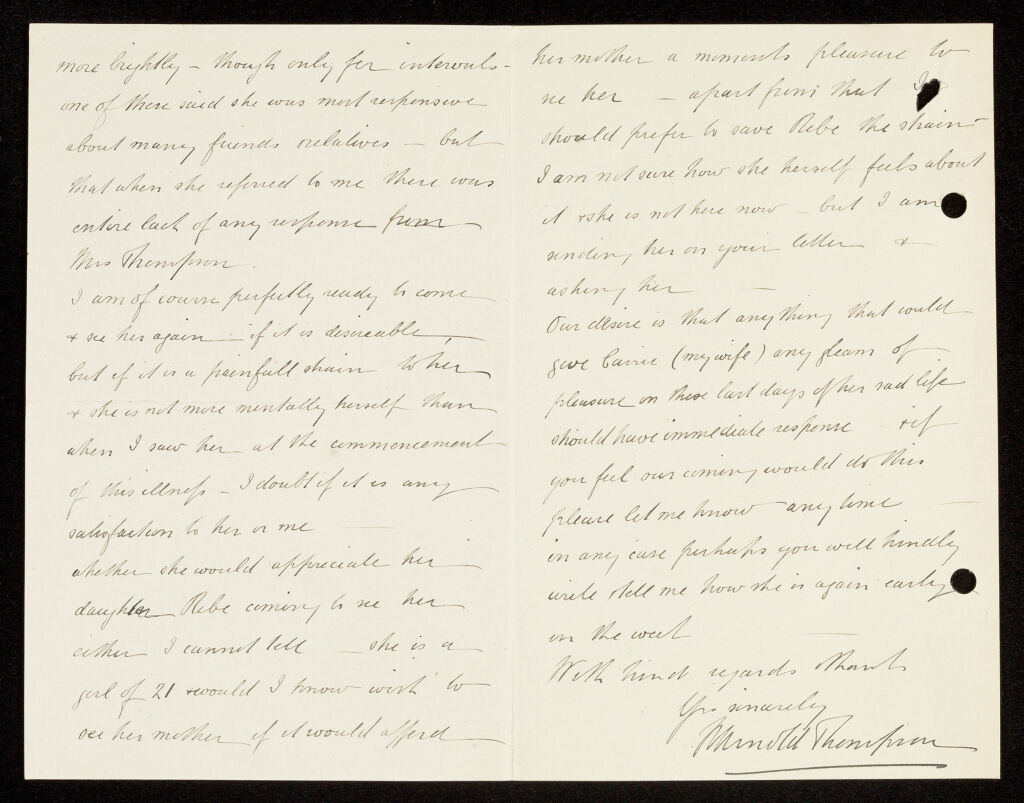 more brightly – though only for intervals –
one of these said she was most responsive
about many friends & relatives – but
that when she referred to me there was
entire lack of any response from
Mrs Thompson.
I am of course perfectly ready to come
& see her again – if it is desireable,
but if it is a painfull strain to her
& she is not more mentally herself than
when I saw her at the commencement
of this illness – I doubt if it is any
satisfaction to her or me —
whether she would appreciate her
daughter Rebe coming to see her
either I cannot tell — she is a
girl of 21 & would I know wish to
see her mother if it would afford
her mother a moments pleasure to
see her — apart from that I
should prefer to save Rebe the strain –
I am not sure how she herself feels about
it & she is not here now – but I am
sending her on your letter &
asking her —
Our desire is that anything that would
give Carrie (my wife) any gleam of
pleasure in these last days of her sad life
should have immediate response & if
you feel our coming would do this
please let me know any time —
in any case perhaps you will kindly
write & tell me how she is again early
in the week —
With kind regards & thanks
Yrs sincerely
Thompson